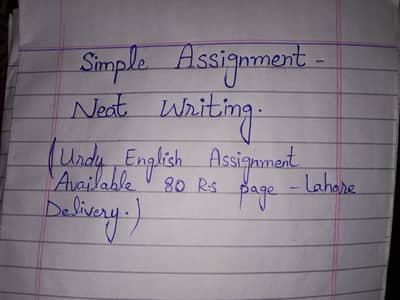 Simple Assignment -
Neat Writing.
(Urdy English Assignment
Available 80 Rs page - Lahore
Delivery.)